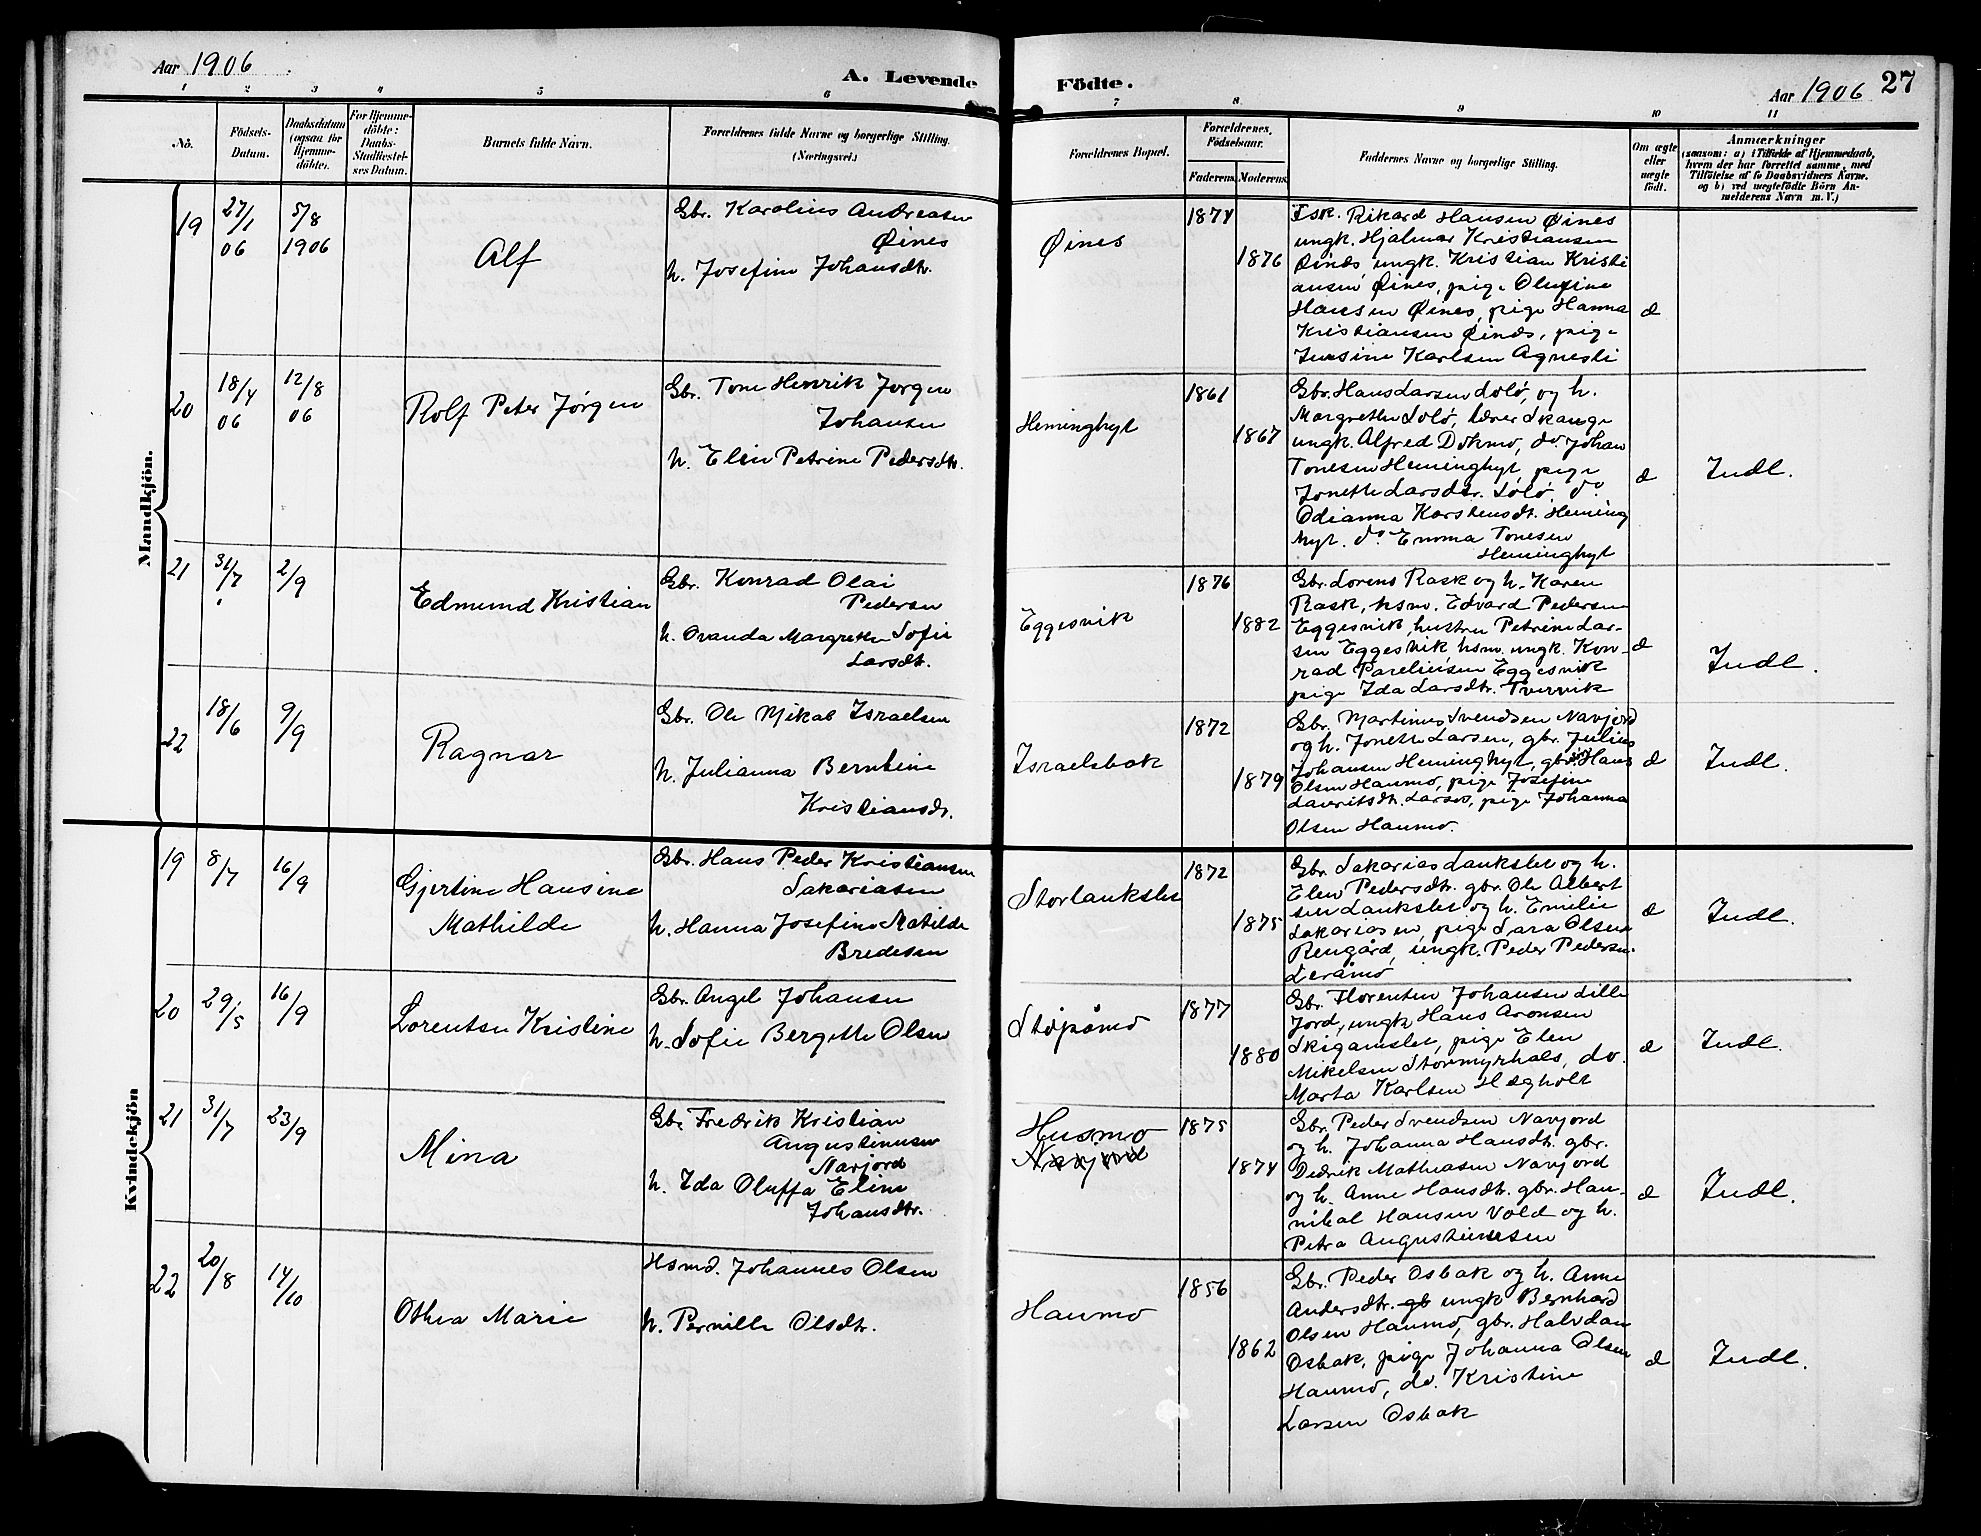 Aar 1906.
A. Levende
Födte.
Aar 1906
27
1 2 3 4 5 6 7 8 9 10 11
No.
Födsels-
Datum.
Daabsdatum
(ogsaa for
Hjemme-
döbte).
For Hjemme-
döbte:
Daabs-
Stadfæstel-
ses Datum.
Barnets fulde Navn.
Forældrenes fulde Navne og borgerlige Stilling.
(Næringsvei.)
Forældrenes Bopæl.
Forældrenes
Födselsaar.
Faderens.
Moderens.
Faddernes Navne og borgerlige Stilling.
Om ægte
eller
uægte
födt.
Anmærkninger
(saasom: a) i Tilfælde af Hjemmedaab,
hvem der har forrettet samme, med
Tilföielse af to Daabsvidners Navne.
og b) ved uægtefödte Börn An-
melderens Navn m. V.)
Mandkjön.
19
27/1
06
5/8
1906
Alf
Gbr. Karolius Andreasen
Øines
h. Josefine Johansdtr.
Øines
1874
1876
Fsk. Rikard Hansen Øines
ungk. Hjalmar Kristiansen
Øines, ungk. Kristian Kristi
ansen Øines, pige Olufine
Hansen Øines, pige Hanna
Kristiansen Øines, pige
Jensine Karlsen Agnesli
æ
20
18/4
06
12/8
06
Rolf Peter Jørgen
Gbr. Tone Henrik Jørgen
Johansen
h. Elen Petrine Pedersdtr.
Heminghyt
1861
1867
Gbr. Hans Larsen Solö, og h.
Margrethe Solö, lærer Skauge
ungk. Alfred Dokmo, do. Johan
Tonesen Heminghyt, pige
Jonette Larsdtr. Solö, do
Odianna Karstensdt. Heming
hyt. do Emma Tonesen
Heminghyt
æ
Indl.
21
31/7
2/9
Edmund Kristian
Gbr. Konrad Olai
Pedersen
h. Ovanda Margrethe Sofie
Larsdt.
Eggesvik
1876
1882
Gbr. Lorens Rask og h. Karen
Rask, hsm. Edvard Pedersen
Eggesvik, hustru Petrine Lar-
sen Eggesvik, hsm. ungk. Kon-
rad Pareliusen Eggesvik
pige Ida Larsdtr. Tvervik
æ
Indl.
22
18/6
9/9
Ragnar
Gbr. Ole Mikal Israelsen
h. Julianna Berntine
Kristiansdt.
Israelsbak
1872
1879
Gbr. Martinus Svendsen Navjord
og h. Jonette Larsen, gbr. Julius
Johansen Heminghyt, gbr. Hans
Olsen Haumo, pige Josefine
Lauritsdt. Larsos, pige Johanna
Olsen Haumo.
æ
Indl.
Kvindekjön
19
8/7
16/9
Gjertine Hansine
Mathilde
Gbr. Hans Peder Kristiansen
Sakariasen
h. Hanna Josefine Matilde
Bredesen
Storlaukslet
1872
1875
Gbr. Sakarias Laukslet og h.
Elen Pedersdtr. gbr. Ole Albert
sen Laukslet og h. Emilie
Sakariasen, pige Sara Olsen
Rengård, ungk. Peder Pedersen
Leråmo
æ
Indl.
20
29/5
16/9
Lorentse Kristine
Gbr. Angel Johansen
h. Sofie Bergitte Olsen
Støpåmo
1877
1880
Gbr. Florentin Johansen Lille
Jord, ungk Hans Aronsen
Skigamslet, pige Elen
Mikelsen Stormyrhals, do.
Marta Karlsen Hægholt
æ
Indl.
21
31/7
23/9
Mina
Gbr Fredrik Kristian
Augustinusen
Navjord
h. Ida Oluffa Eline
Johansdtr.
Husmo
Navjord
1875
1874
Gbr. Peder Svendsen Navjord
og h. Johanna Hansdt. gbr.
Didrik Mathiasen Navjord
og h. Anne Hansdt. gbr. Han-
nibal Hansen Vold og h.
Petra Augustinusen
æ
Indl.
22
20/8
14/10
Othea Marie
Hsmd. Johannes Olsen
h. Pernille Olsdtr.
Haumo
1856
1862
Gbr. Peder Osbak og h. Anne
Andersdtr. gb ungk Bernhard
Olsen Haumo, gbr. Halvdan
Osbak, pige Johanna Olsen
Haumo, do. Kristine
Larsen Osbak
æ
Indl.